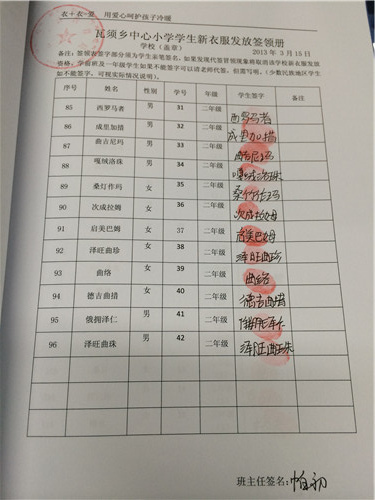 衣+衣=爱 用爱心呵护孩子冷暖
瓦须乡中心小学学生新衣服发放签领册
学校（盖章） 2013 年 3 月 15 日
备注：签领册学生签字部分为学生亲笔签名，如果发现代签冒领现象将取消该学校新衣服发放
资格，学前班及一年级学生如果不能签字可以请老师代签，但需写明。（少数民族地区学生
如不能签字，可视实际情况说明）。
序号 姓名 性别 学号 年级 学生签字 备注
85 西罗马者 男 31 二年级 西罗马者
86 成里加措 男 32 二年级 成里加措
87 曲吉尼玛 男 33 二年级 曲吉尼玛
88 嘎绒洛珠 男 34 二年级 嘎绒洛珠
89 桑灯作玛 女 35 二年级 桑灯作玛
90 次成拉姆 女 36 二年级 次成拉姆
91 启美巴姆 女 37 二年级 启美巴姆
92 泽旺曲珍 女 38 二年级 泽旺曲珍
93 曲络 女 39 二年级 曲络
94 德吉曲措 女 40 二年级 德吉曲措
95 俄拥泽仁 男 41 二年级
96 泽旺曲珠 男 42 二年级 泽旺曲珠
班主任签名：